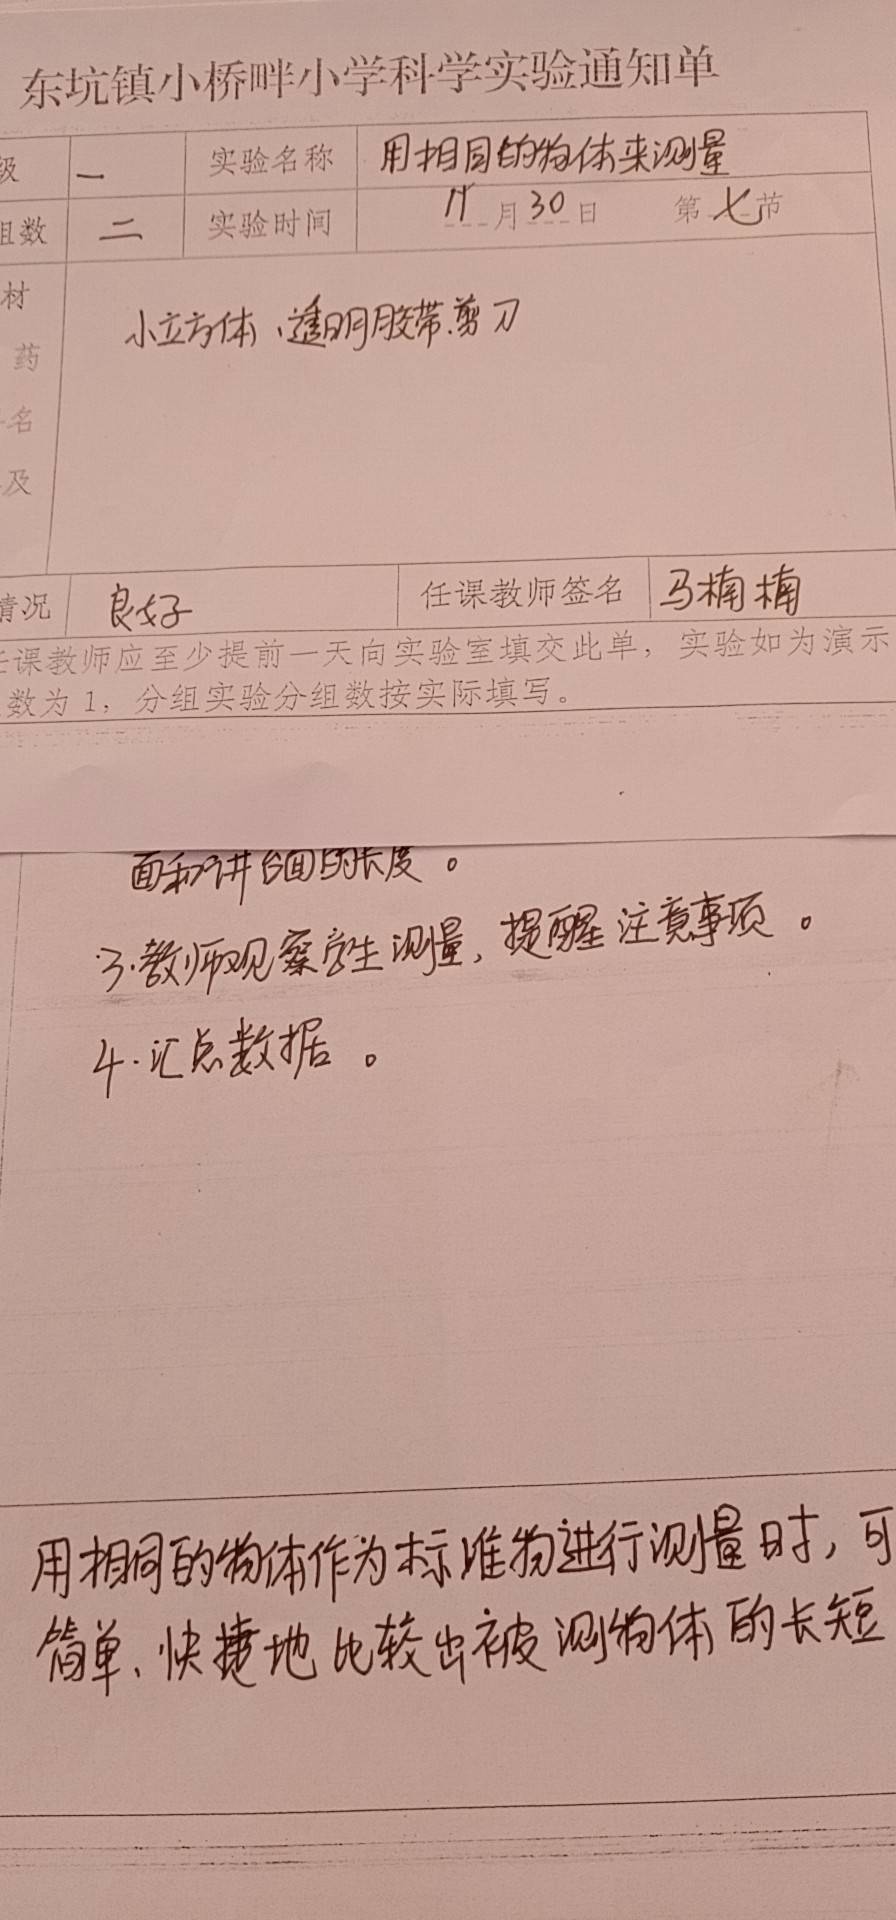 东坑镇小桥畔小学科学实验通知单
级 一 实验名称 用相同的物体来测量
组数 二 实验时间 11月30日 第七节
材
小立方体、透明胶带.剪刀
药
名
及
情况 良好 任课教师签名 马楠楠
任课教师应至少提前一天向实验室填交此单，实验如为演示
数为 1，分组实验分组数按实际填写。
面和讲台面的长度。
3.教师观察学生测量，提醒注意事项。
4.汇总数据。
用相同的物体作为标准物进行测量时，可
简单、快捷地比较出被测物体的长短